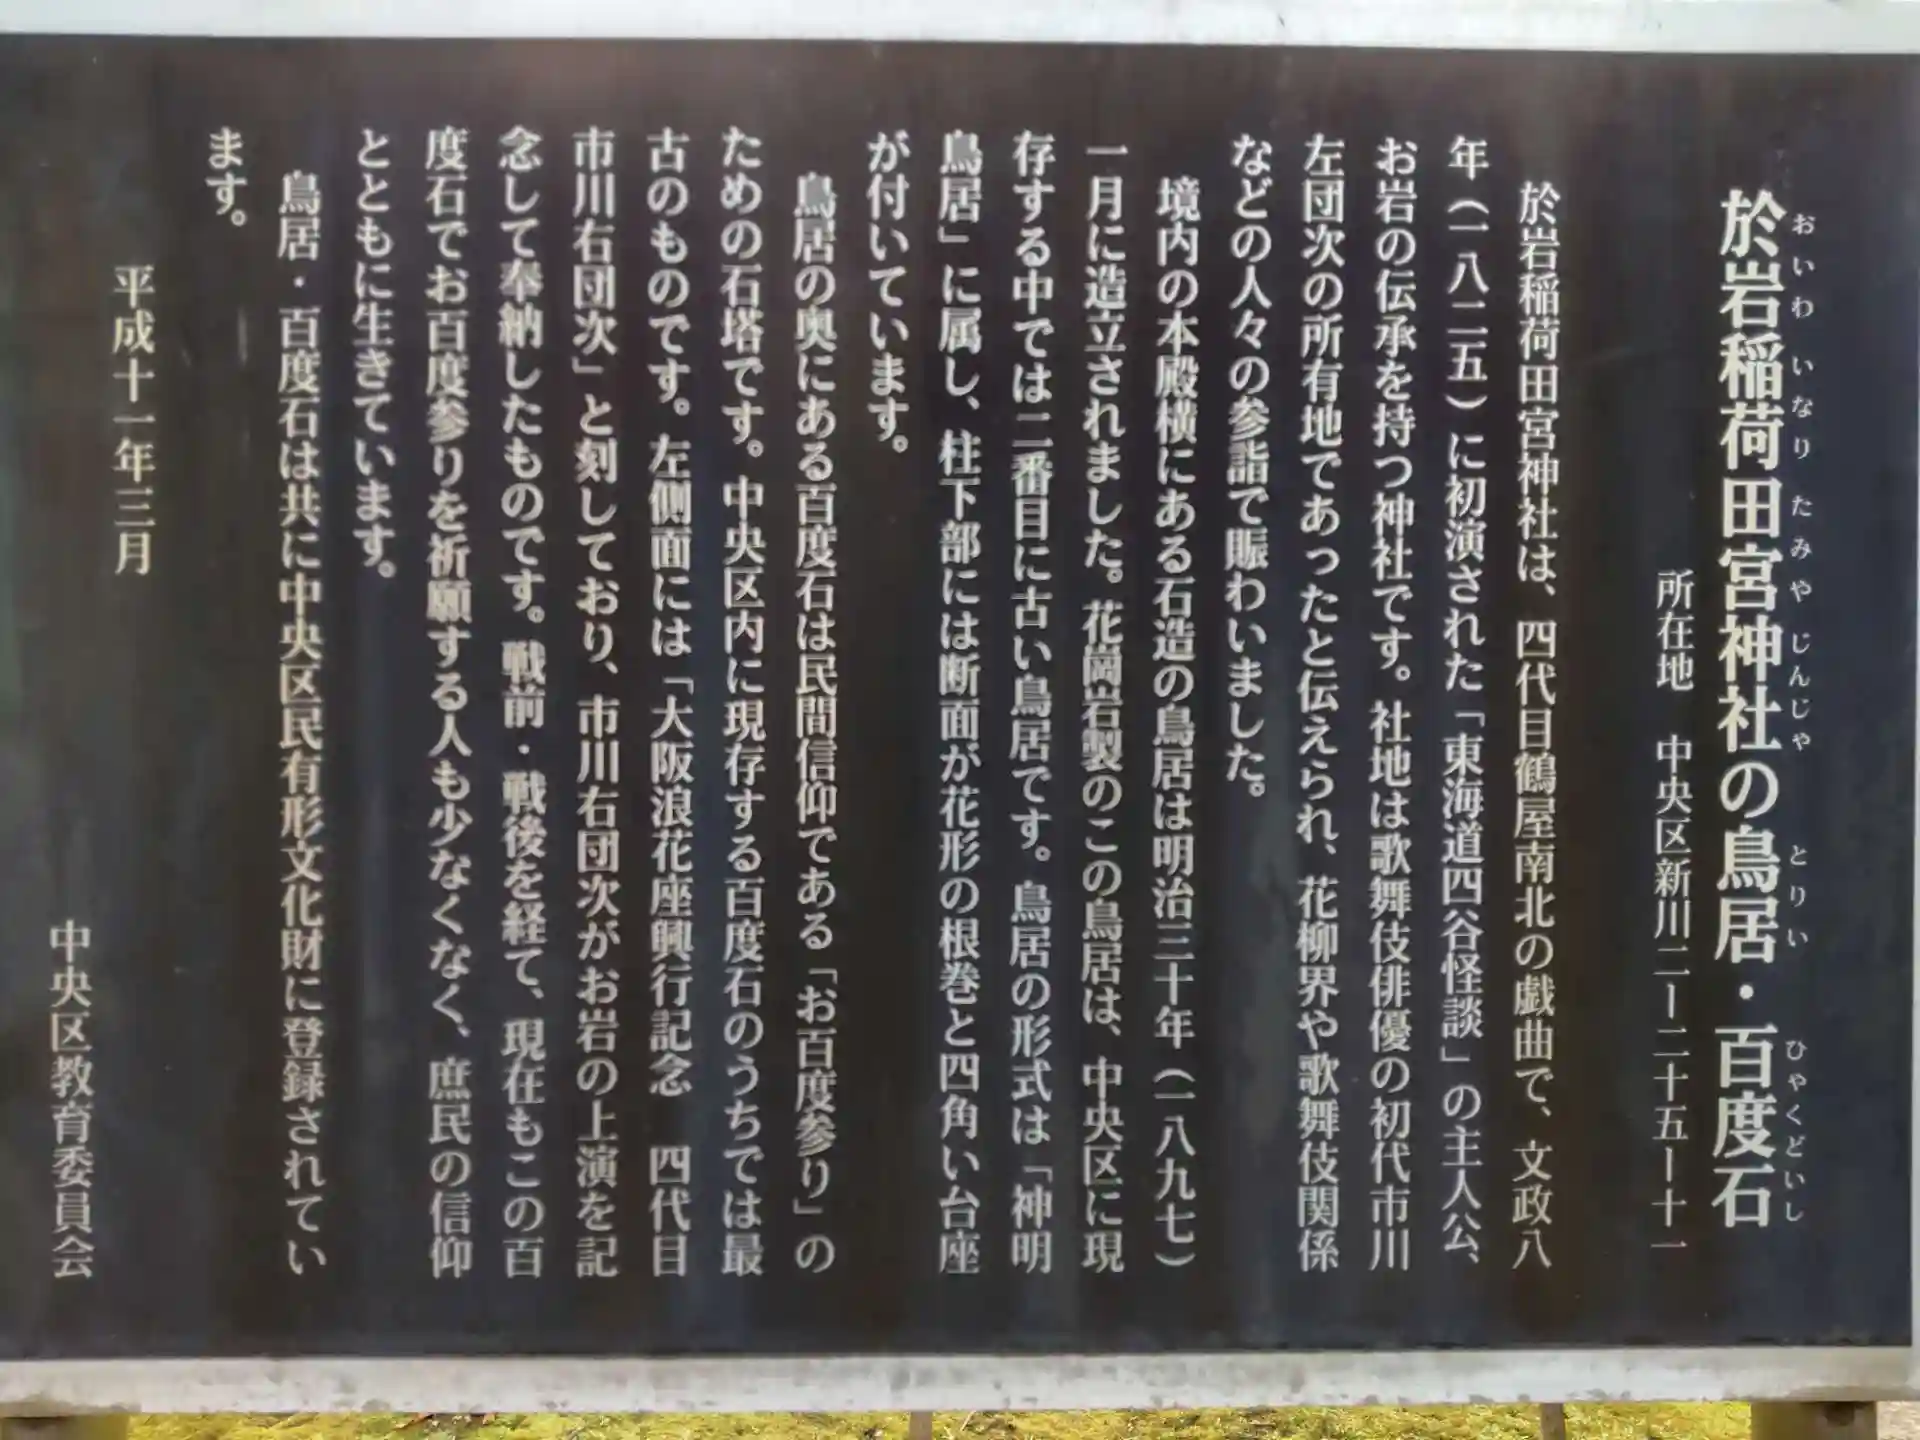 於岩稲荷田宮神社の鳥居・百度石
おいわ いなり たみや じんじゃ とりい ひゃくどいし
所在地 中央区新川二ー二十五ー十一
於岩稲荷田宮神社は、四代目鶴屋南北の戯曲で、文政八
年（一八二五）に初演された「東海道四谷怪談」の主人公、
お岩の伝承を持つ神社です。社地は歌舞伎俳優の初代市川
左団次の所有地であったと伝えられ、花柳界や歌舞伎関係
などの人々の参詣で賑わいました。
境内の本殿横にある石造の鳥居は明治三十年（一八九七）
一月に造立されました。花崗岩製のこの鳥居は、中央区に現
存する中では二番目に古い鳥居です。鳥居の形式は「神明
鳥居」に属し、柱下部には断面が花形の根巻と四角い台座
が付いています。
鳥居の奥にある百度石は民間信仰である「お百度参り」の
ための石塔です。中央区内に現存する百度石のうちでは最
古のものです。左側面には「大阪浪花座興行記念 四代目
市川右団次」と刻しており、市川右団次がお岩の上演を記
念して奉納したものです。戦前・戦後を経て、現在もこの百
度石でお百度参りを祈願する人も少なくなく、庶民の信仰
とともに生きています。
鳥居・百度石は共に中央区民有形文化財に登録されてい
ます。
平成十一年三月
中央区教育委員会